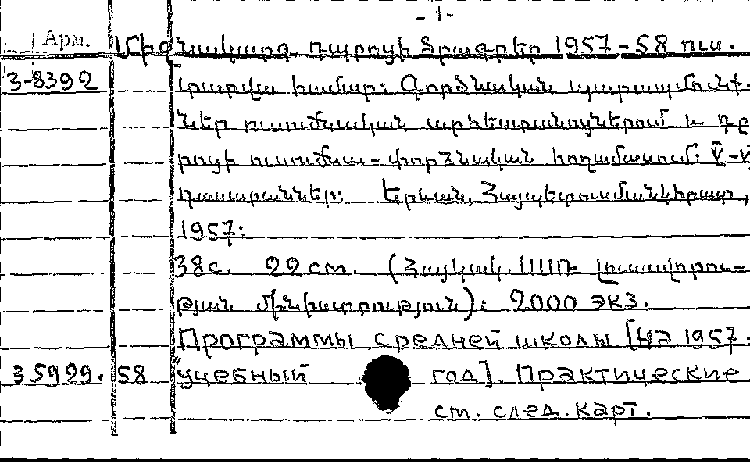 -1-
Арм. Միջնակարգ դպրոցի ծրագրեր 1957-58 ուս.
3-8392 տարվա համար: Գործնական պարապմունք-
ներ ուսումնական արհեստանոցներում և դպ
րոցի ուսումնա-փորձնական հողամասում: V-V
դասարաններ: Երևան, Հայպետուսմանկհրատ,
1957:
38с. 22 см. (Հայկական ՍՍՌ լուսավորու-
թյան մինիստրություն): 2000 экз.
Программы средней школы [На 1957-
35999. 58 учебный год]. Практические
см. след. карт.